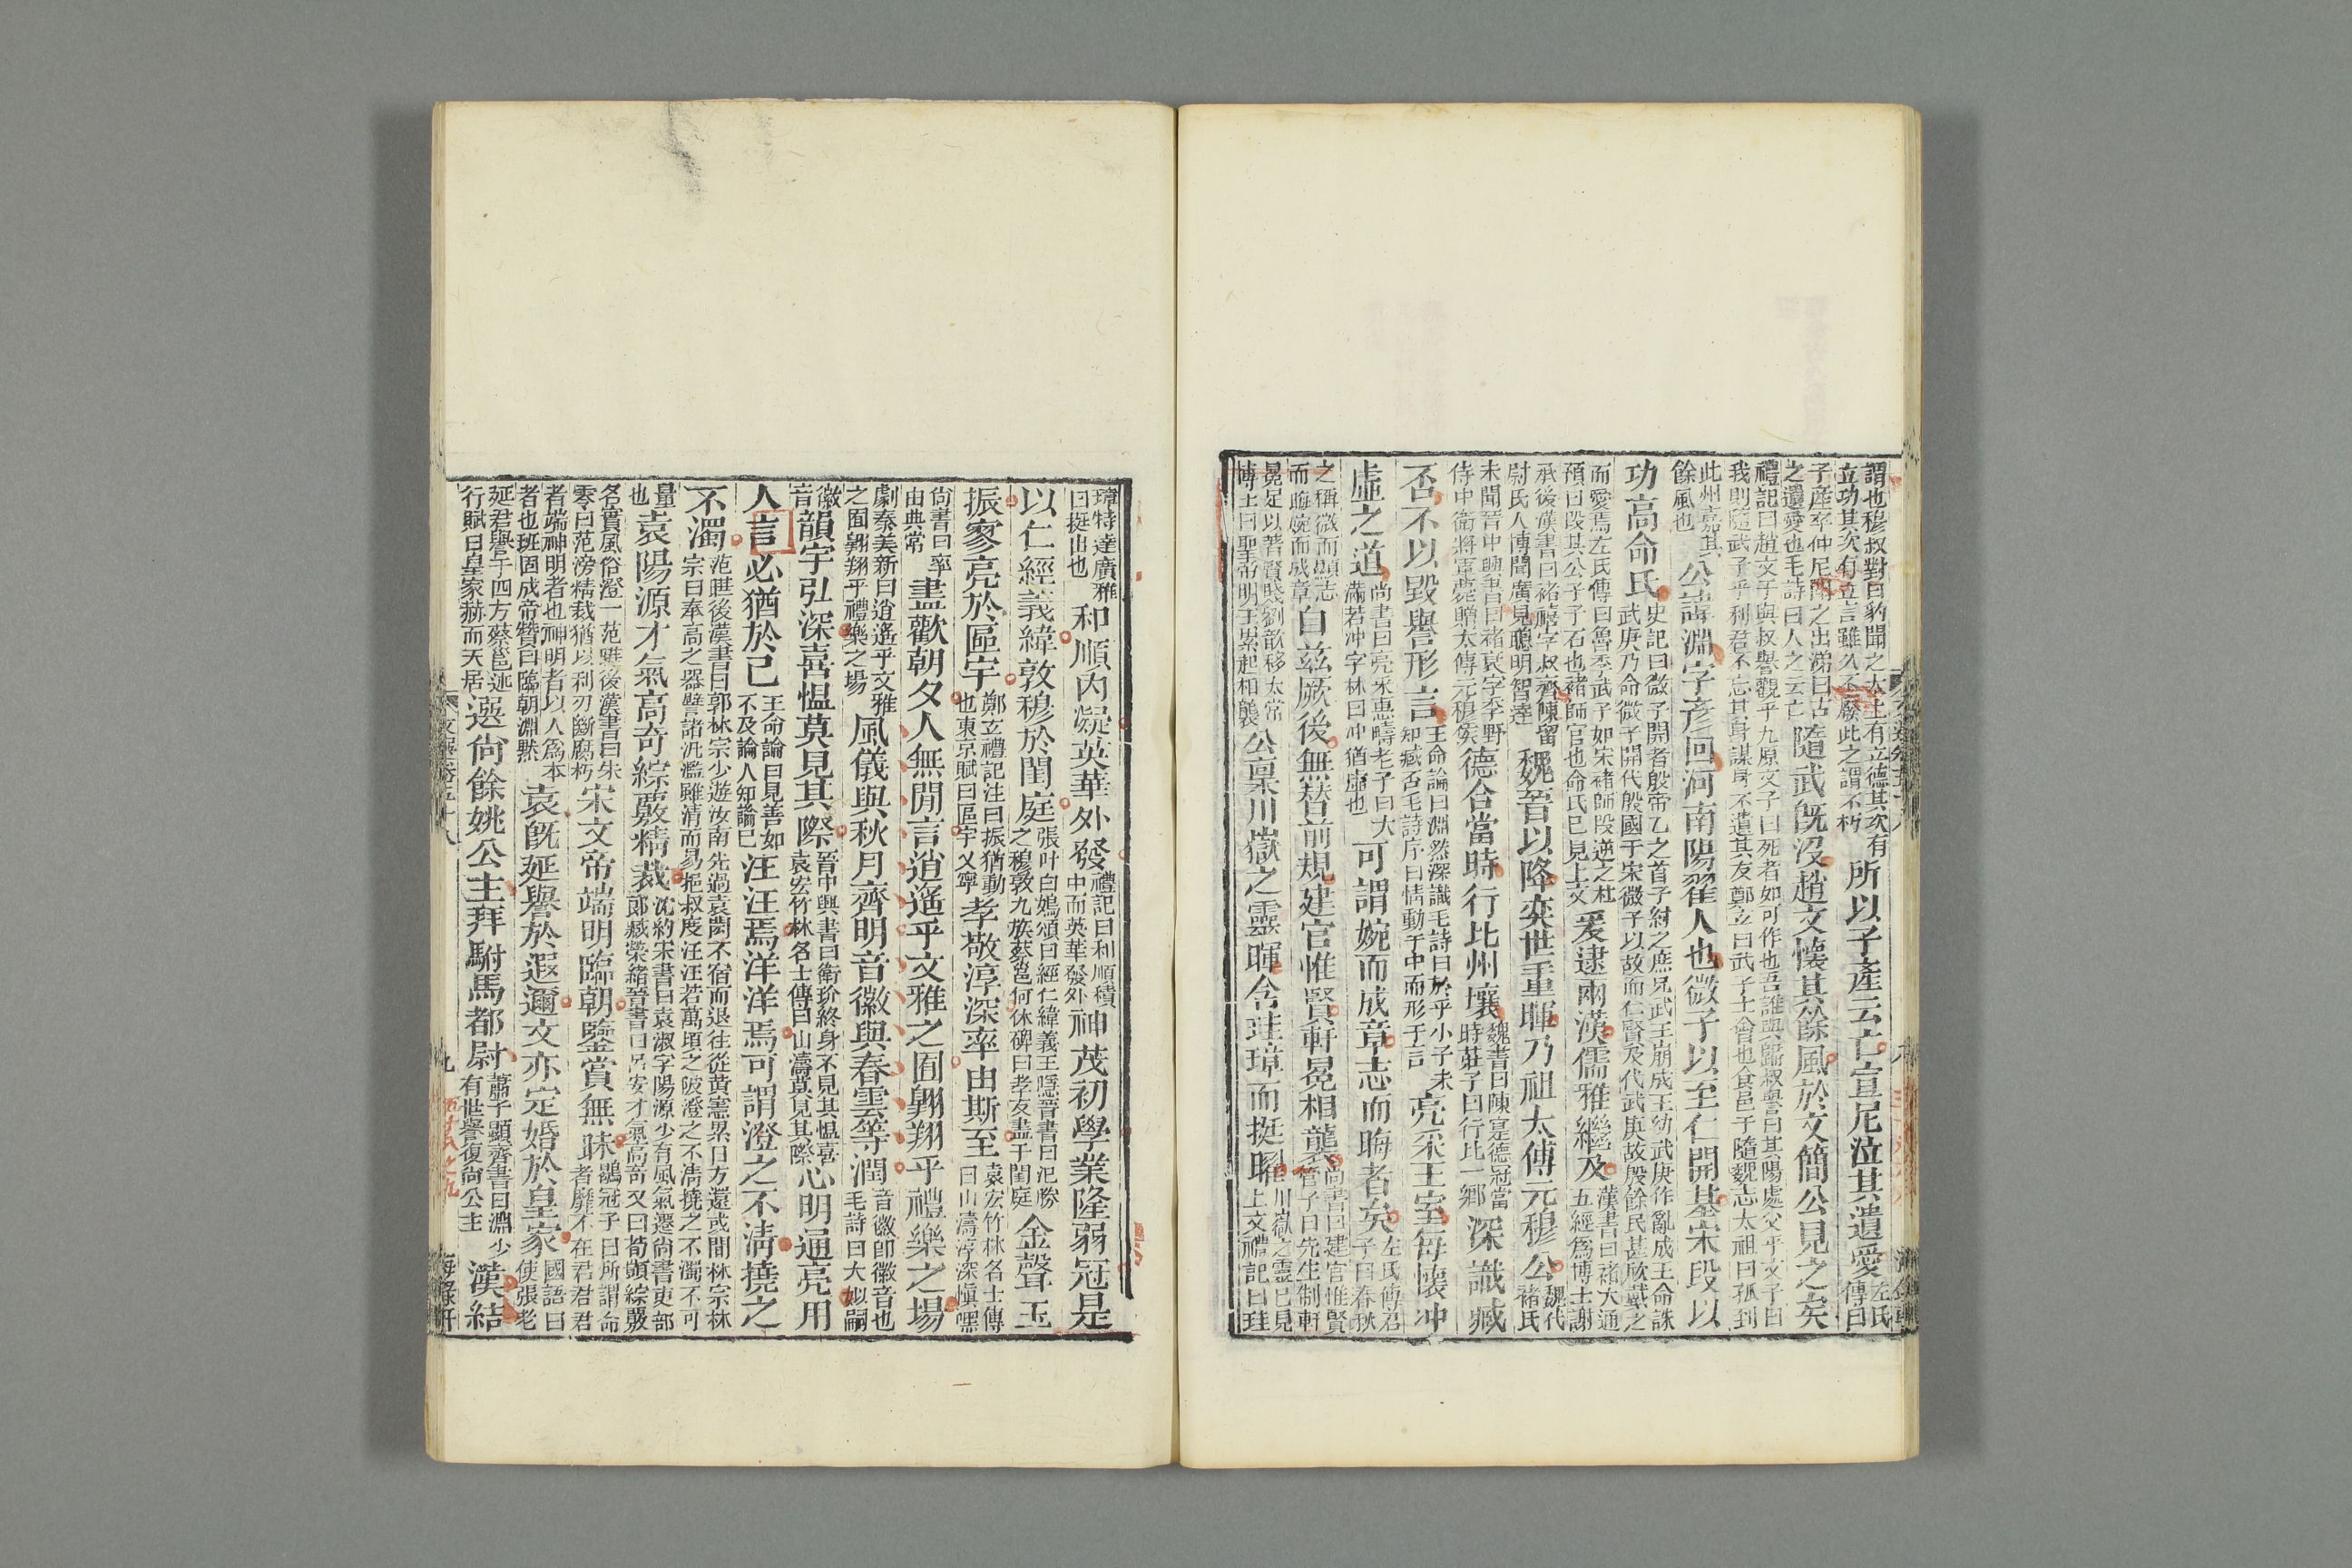 謂也穆叔對曰豹聞之太上有立德其次有
立功其次有立言雖久不廢此之謂不朽
所以子產云亡宣尼泣其遺愛
左氏
傳曰
子產卒仲尼聞之出涕曰古
之遺愛也毛詩曰人之云亡
隨武旣沒趙文懷其餘風於文簡公見之矣
禮記曰趙文子與叔譽觀乎九原文子曰死者如可作也吾誰與歸叔譽曰其陽處父乎文子曰
我則隨武子乎利君不忘其身謀身不遺其友鄭玄曰武子士會也食邑于隨魏志太祖曰孤到
此州嘉其
餘風也
公諱淵字彥回河南陽翟人也微子以至仁開基宋段以
功高命氏
史記曰微子開者殷帝乙之首子紂之庶兄武王崩成王幼武庚作亂成王命誅
武庚乃命微子開代殷國于宋微子以故而仁賢及代武庚故殷餘民甚欣戴之
而愛焉左氏傳曰魯季武子如宋褚師段逆之杜
預曰段共公子子石也褚師官也命氏已見上文
爰逮兩漢儒雅繼及
漢書曰褚大通
五經爲博士謝
承後漢書曰褚禧字叔齊陳留
尉氏人博聞廣見聰明智達
魏晉以降奕世重暉乃祖太傅元穆公
魏代
褚氏
未聞晉中興書曰褚裒字季野
侍中衛將軍薨贈太傅元穆矦
德合當時行比州壤
魏書曰陳寔德冠當
時莊子曰行比一鄉
深識臧
否不以毀譽形言
王命論曰淵然深識毛詩曰於乎小子未
知臧否毛詩序曰情動于中而形于言
亮采王室每懷沖
虛之道
尚書曰亮采惠疇老子曰大
滿若沖字林曰沖猶虛也
可謂婉而成章志而晦者矣
左氏傳君
子曰春秋
之稱微而顯志
而晦婉而成章
自玆厥後無替前規建官惟賢軒冕相襲
尚書曰建官惟賢
管子曰先生制軒
冕足以著貴賤劉歆移太常
博士曰聖帝明王累起相襲
公稟川嶽之靈暉含珪璋而挺曜
川嶽之靈已見
上文禮記曰珪
璋特達廣雅
曰挺出也
和順內凝英華外發
禮記曰和順積
中而英華發外
神茂初學業隆弱冠是
以仁經義緯敦穆於閨庭
張叶白鳩頌曰經仁緯義王隱晉書曰氾勝
之穆敦九族蔡邕何休碑曰孝友盡于閨庭
金聲玉
振寥亮於區宇
鄭玄禮記注曰振猶動
也東京賦曰區宇乂寧
孝敬淳深率由斯至
袁宏竹林名士傳
曰山濤淳深愼嘿
尚書曰率
由典常
盡歡朝夕人無閒言逍遙乎文雅之囿翺翔乎禮樂之場
劇秦美新曰逍遙乎文雅
之囿翺翔乎禮樂之場
風儀與秋月齊明音徽與春雲等潤
音徽卽徽音也
毛詩曰大姒嗣
徽
音
韻宇弘深喜慍莫見其際
晉中興書曰衛玠終身不見其慍喜
袁宏竹林名士傳曰山濤莫見其際
心明通亮用
人言必猶於己
王命論曰見善如
不及論人知諭已
汪汪焉洋洋焉可謂澄之不淸撓之
不濁
范曄後漢書曰郭林宗少遊汝南先過袁閎不宿而退往從黃憲累日方還或問林宗林
宗曰奉高之器譬諸汎濫雖清而易挹叔度汪汪若萬頃之陂澄之不淸撓之不濁不可
量
也
袁陽源才氣高奇綜覈精裁
沈約宋書曰袁淑字陽源少有風氣遷尚書吏部
郎臧榮緒晉書曰呂安才氣高奇又曰荀顗綜覈
名實風俗澄一范曄後漢書曰朱
零曰范滂精裁猶以利刃斷腐朽
宋文帝端明臨朝鑒賞無昧
鶡冠子曰所謂命
者靡不在君君君
者端神明者也神明者以人爲本
者也班固成帝贊曰臨朝淵黙
袁旣延譽於遐邇文亦定婚於皇家
國語曰
使張老
延君譽于四方蔡邕述
行賦曰皇家赫而天居
選尚餘姚公主拜駙馬都尉
蕭子顯齊書曰淵少
有世譽復尚公主
漢結
文選卷五十八
九
海錄軒